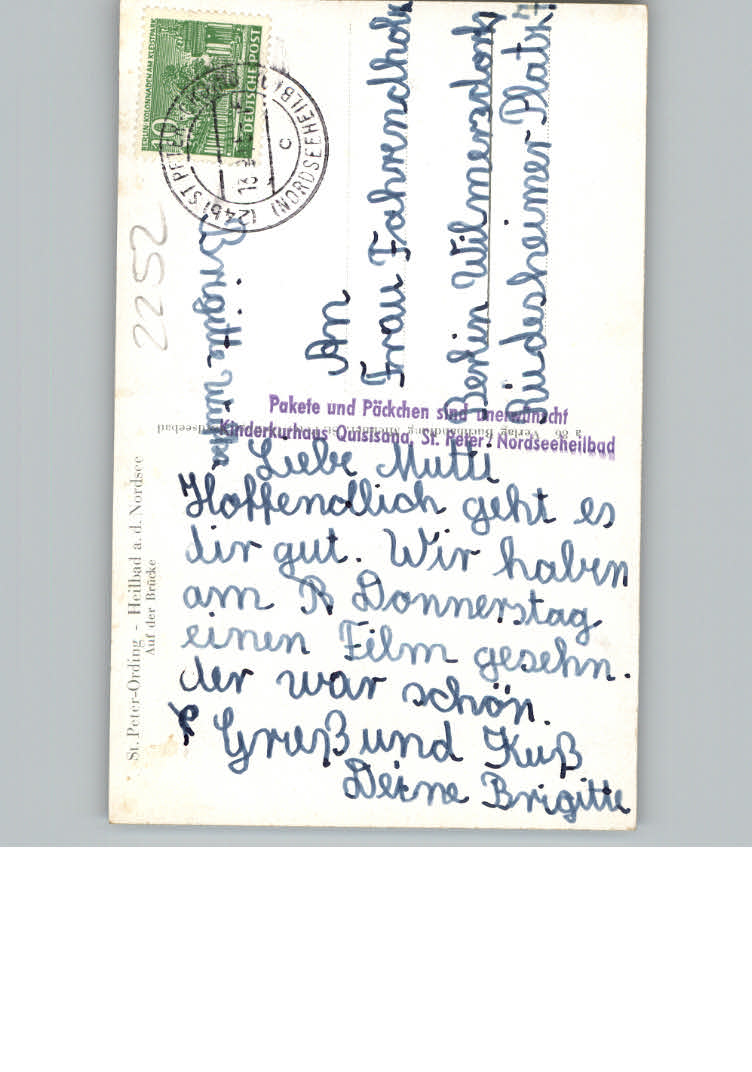 Liebe Mutti
Hoffendlich geht es
dir gut. Wir haben
am Donnerstag
einen Film gesehn.
der war schön.
Gruß und Kuß
Deine Brigitte
Pakete und Päckchen sind unerwünscht
Kinderkurhaus Quisisana, St. Peter / Nordseeheilbad
An
Frau Fahrendholz
Berlin Wilmersdorf
Rüdesheimer-Platz
Brigitte
2252
St. Peter-Ording - Heilbad a. d. Nordsee
Auf der Brücke
BERLIN KOLONNADEN AM KLEISTPARK
10
DEUTSCHE POST
(24b) ST. PETER-ORDING (NORDSEEHEILB)
13
c
a 66 Verlag Buchhandlung